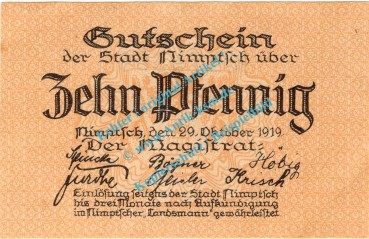 Gutschein
der Stadt Nimptsch über
Zehn Pfennig
Nimptsch, den 29. Oktober 1919
Der Magistrat:
Bögner Höbig
Krisch
Einlösung seitens der Stadt Nimptsch
bis drei Monate nach Aufkündigung
im Nimptscher „Landsmann" gewährleistet